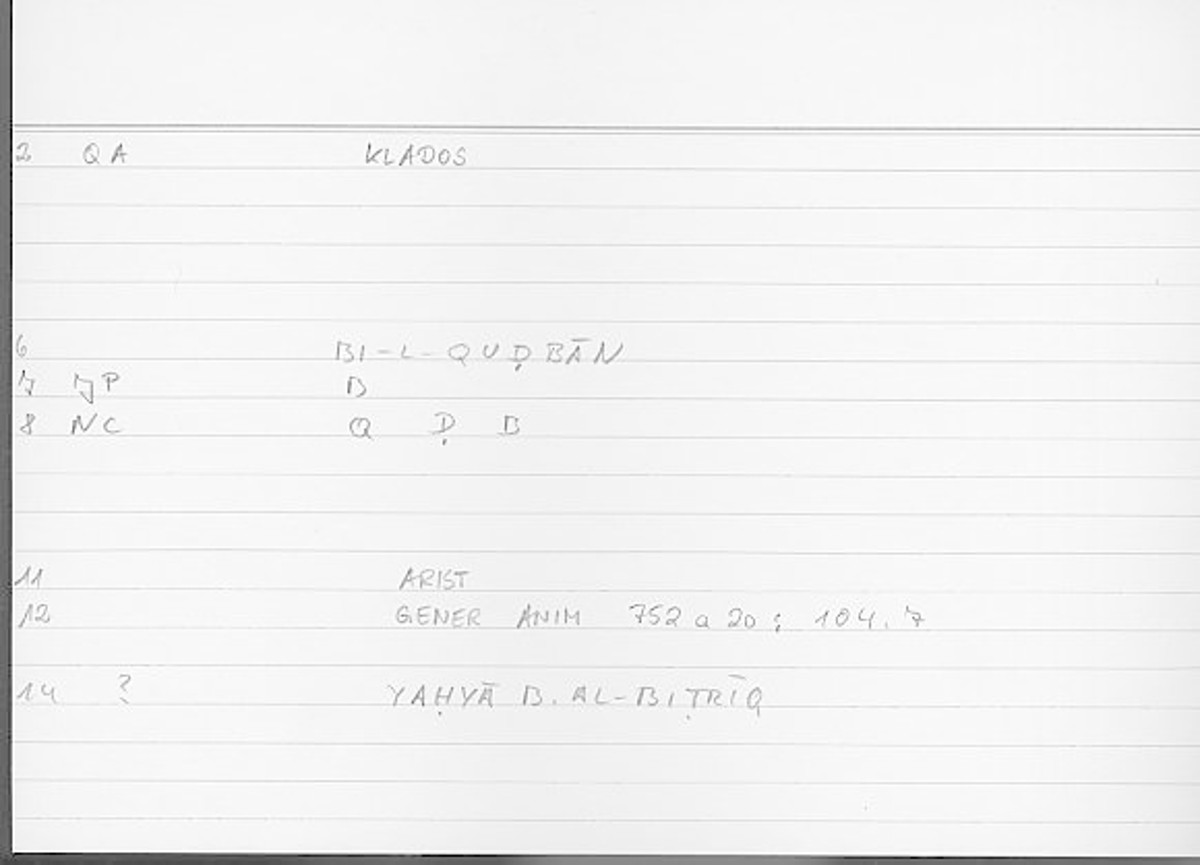 2 QA KLADOS
6 BI-L-QUḌBĀN
7 JP B
8 NC Q Ḍ B
11 ARIST
12 GENER ANIM 752 a 20 ; 104.7
14 ? YAḤYĀ B. AL-BIṬRĪQ